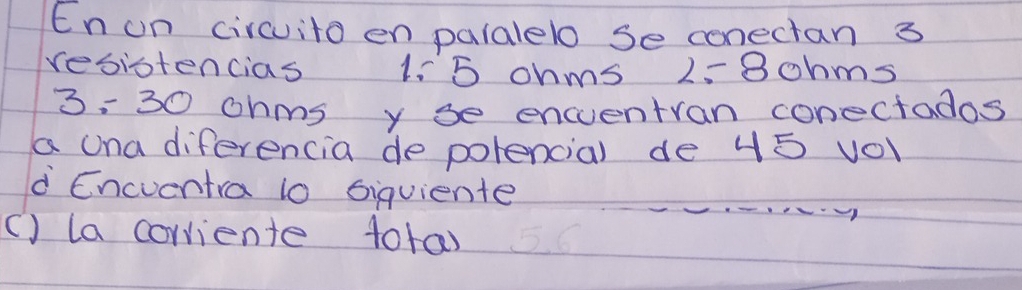 En un circuito en paralelo se conectan 3
resistencias 1.- 5 ohms 2.- 8 ohms
3.- 30 ohms y se encuentran conectados
a una diferencia de potencial de 45 vol
d Encuentra lo siguiente
c) la corriente total 5.6